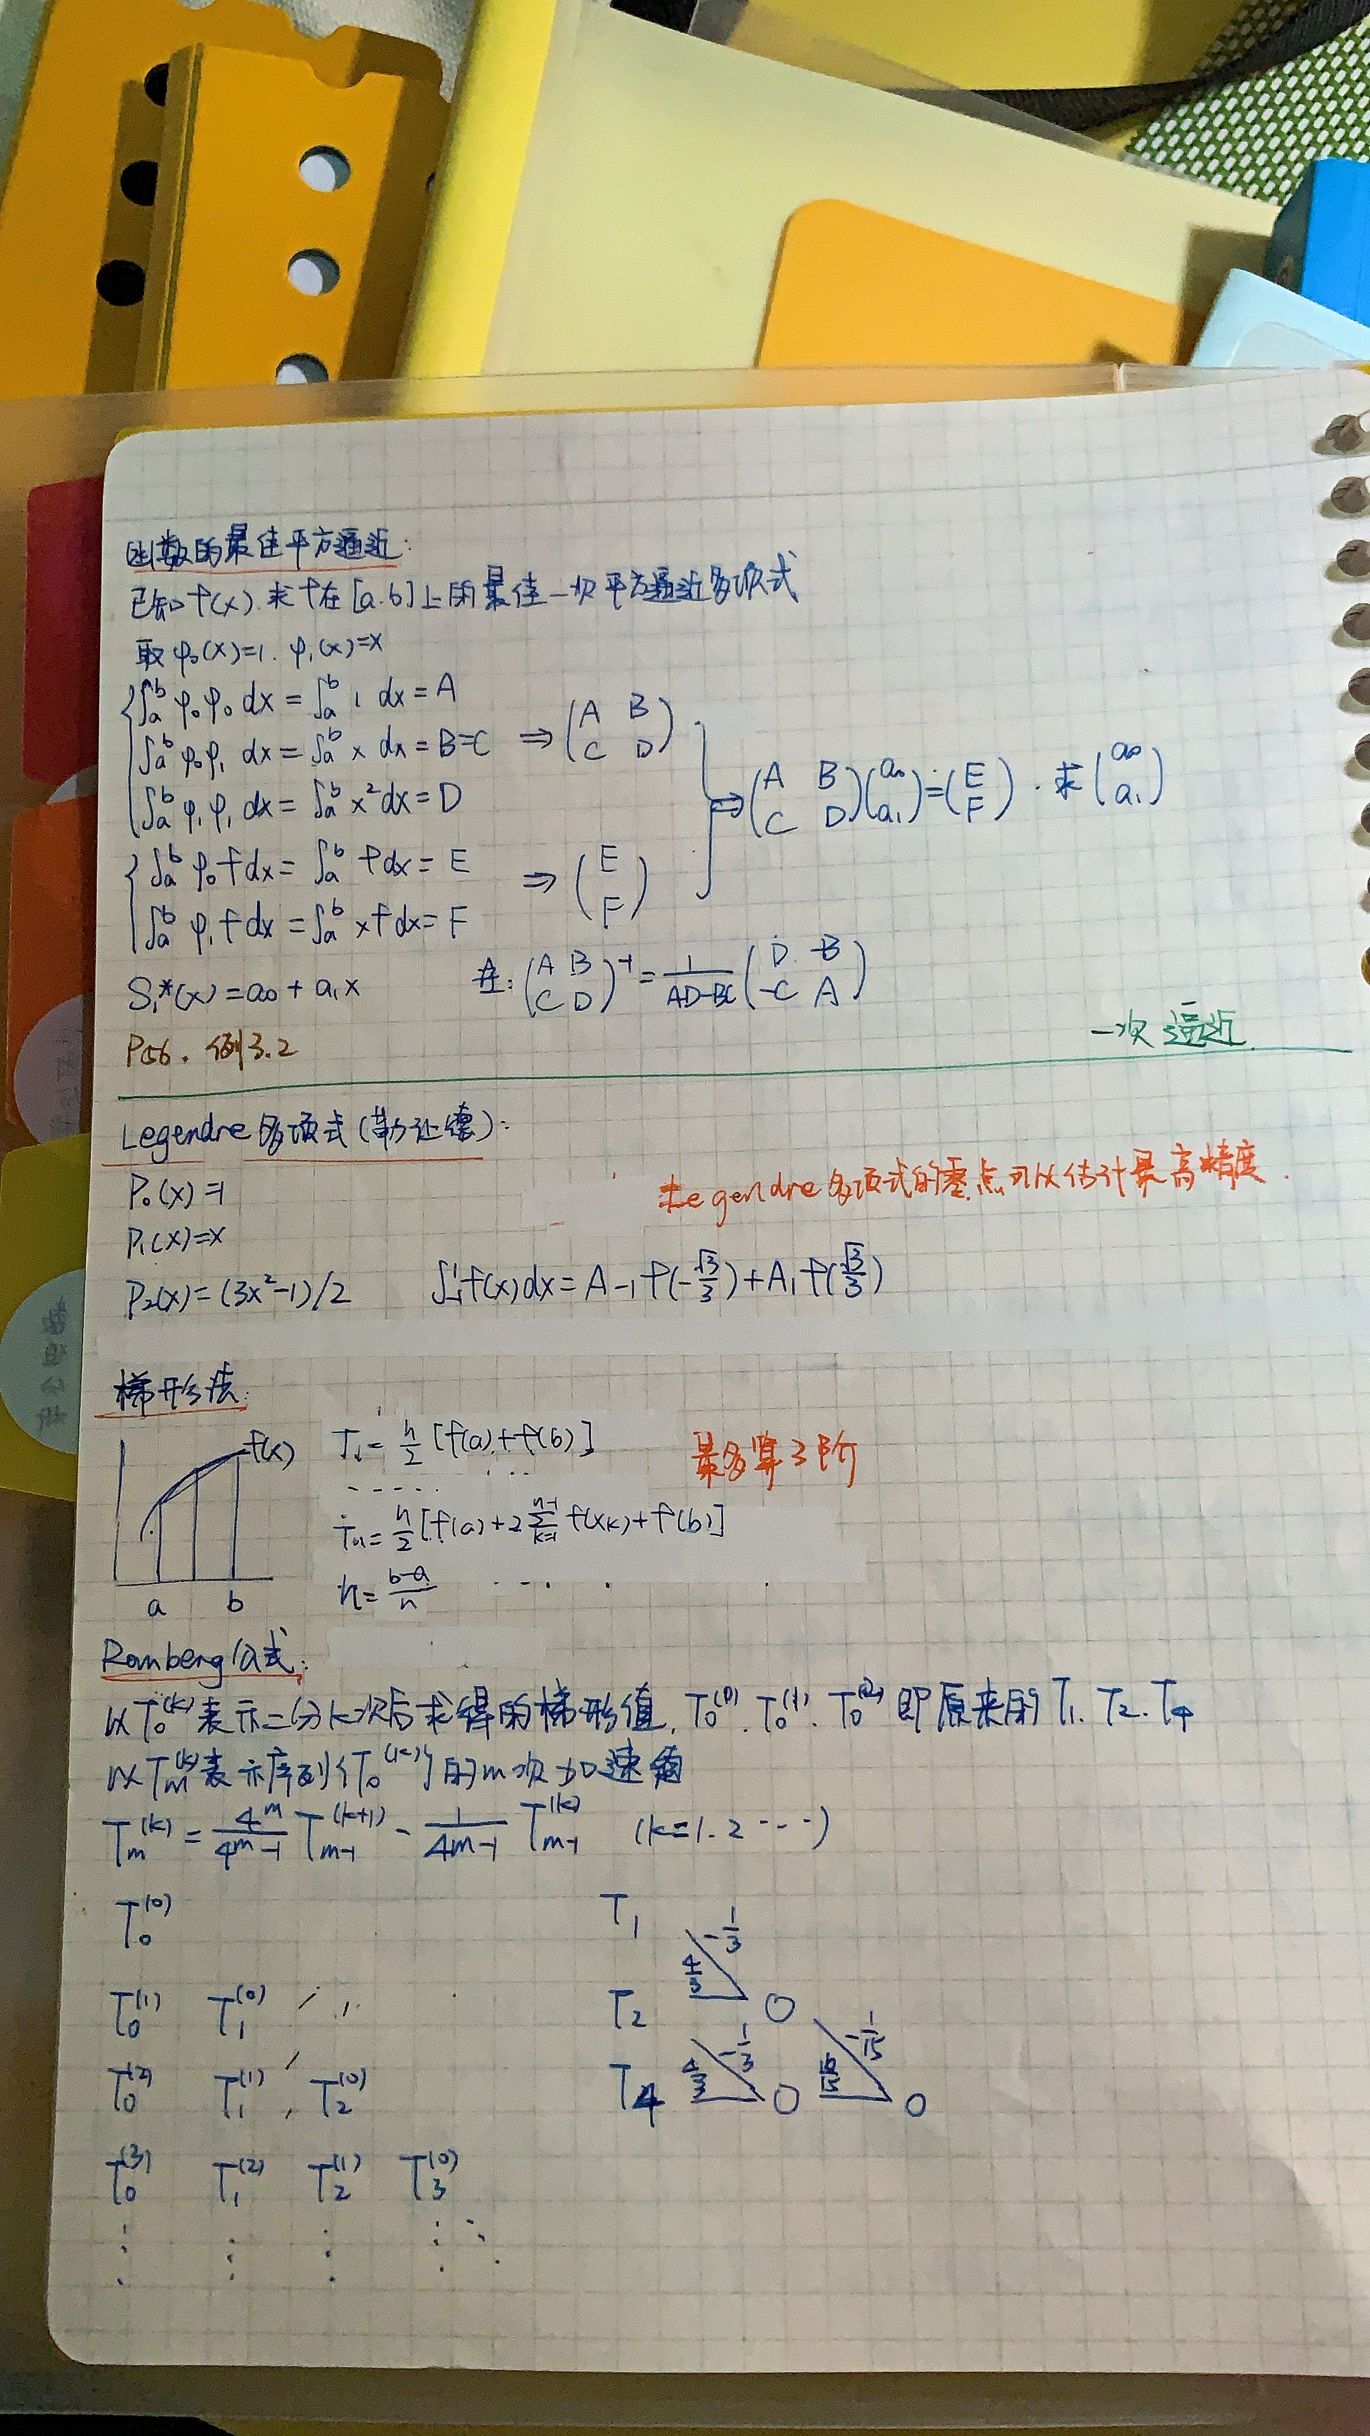 函数的最佳平方逼近:
已知f(x).求f在[a.b]上的最佳一次平方逼近多项式
取φ₀(x)=1. φ₁(x)=x
∫ₐᵇ φ₀φ₀ dx = ∫ₐᵇ 1 dx = A
∫ₐᵇ φ₀φ₁ dx = ∫ₐᵇ x dx = B=C ⇒ (A B
C D)
∫ₐᵇ φ₁φ₁ dx = ∫ₐᵇ x² dx = D
⇒ (A B
C D)(a₀
a₁) = (E
F) . 求(a₀
a₁)
∫ₐᵇ φ₀f dx = ∫ₐᵇ f dx = E ⇒ (E
F)
∫ₐᵇ φ₁f dx = ∫ₐᵇ xf dx = F
S₁*(x) = a₀ + a₁x
(A B
C D)⁻¹ = 1/(AD-BC) (D -B
-C A)
P56. 例3.2
一次逼近
Legendre多项式(勒让德):
P₀(x)=1
Legendre多项式的零点可以估计最高精度.
P₁(x)=x
P₂(x)=(3x²-1)/2 ∫₋₁¹f(x)dx = A₋₁f(-√3/3)+A₁f(√3/3)
梯形法:
f(x)
a b
T₁= h/2 [f(a)+f(b)]
......
Tₙ= h/2 [f(a)+2∑ₖ₌₁ⁿ⁻¹ f(xₖ)+f(b)]
h= (b-a)/n
最多算3阶
Romberg公式:
以T₀⁽ᵏ⁾表示二分k次后求得的梯形值, T₀⁽⁰⁾. T₀⁽¹⁾. T₀⁽²⁾ 即原来的T₁. T₂. T₄
以Tₘ⁽ᵏ⁾表示序列{T₀⁽ᵏ⁾}的m次加速值
Tₘ⁽ᵏ⁾ = 4ᵐ/(4ᵐ-1) Tₘ₋₁⁽ᵏ⁺¹⁾ - 1/(4ᵐ-1) Tₘ₋₁⁽ᵏ⁾ (k=1.2···)
T₀⁽⁰⁾
T₀⁽¹⁾ T₁⁽⁰⁾
T₀⁽²⁾ T₁⁽¹⁾ T₂⁽⁰⁾
T₀⁽³⁾ T₁⁽²⁾ T₂⁽¹⁾ T₃⁽⁰⁾
⋮ ⋮ ⋮ ⋮ ⋱
T₁
-1/3
4/3
T₂ O
-1/3 -1/15
4/3 16/15
T₄ O O